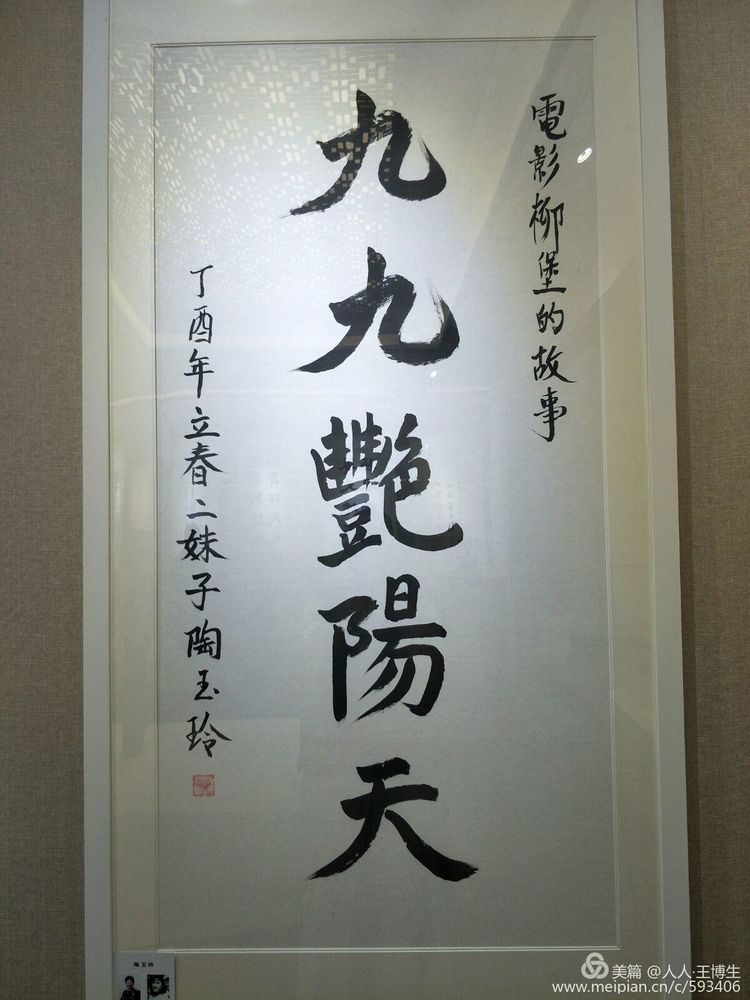 電影柳堡的故事
九九艷陽天
丁酉年立春二妹子陶玉玲
陶玉玲
美篇 @人人·王博生
www.meipian.cn/c/593406